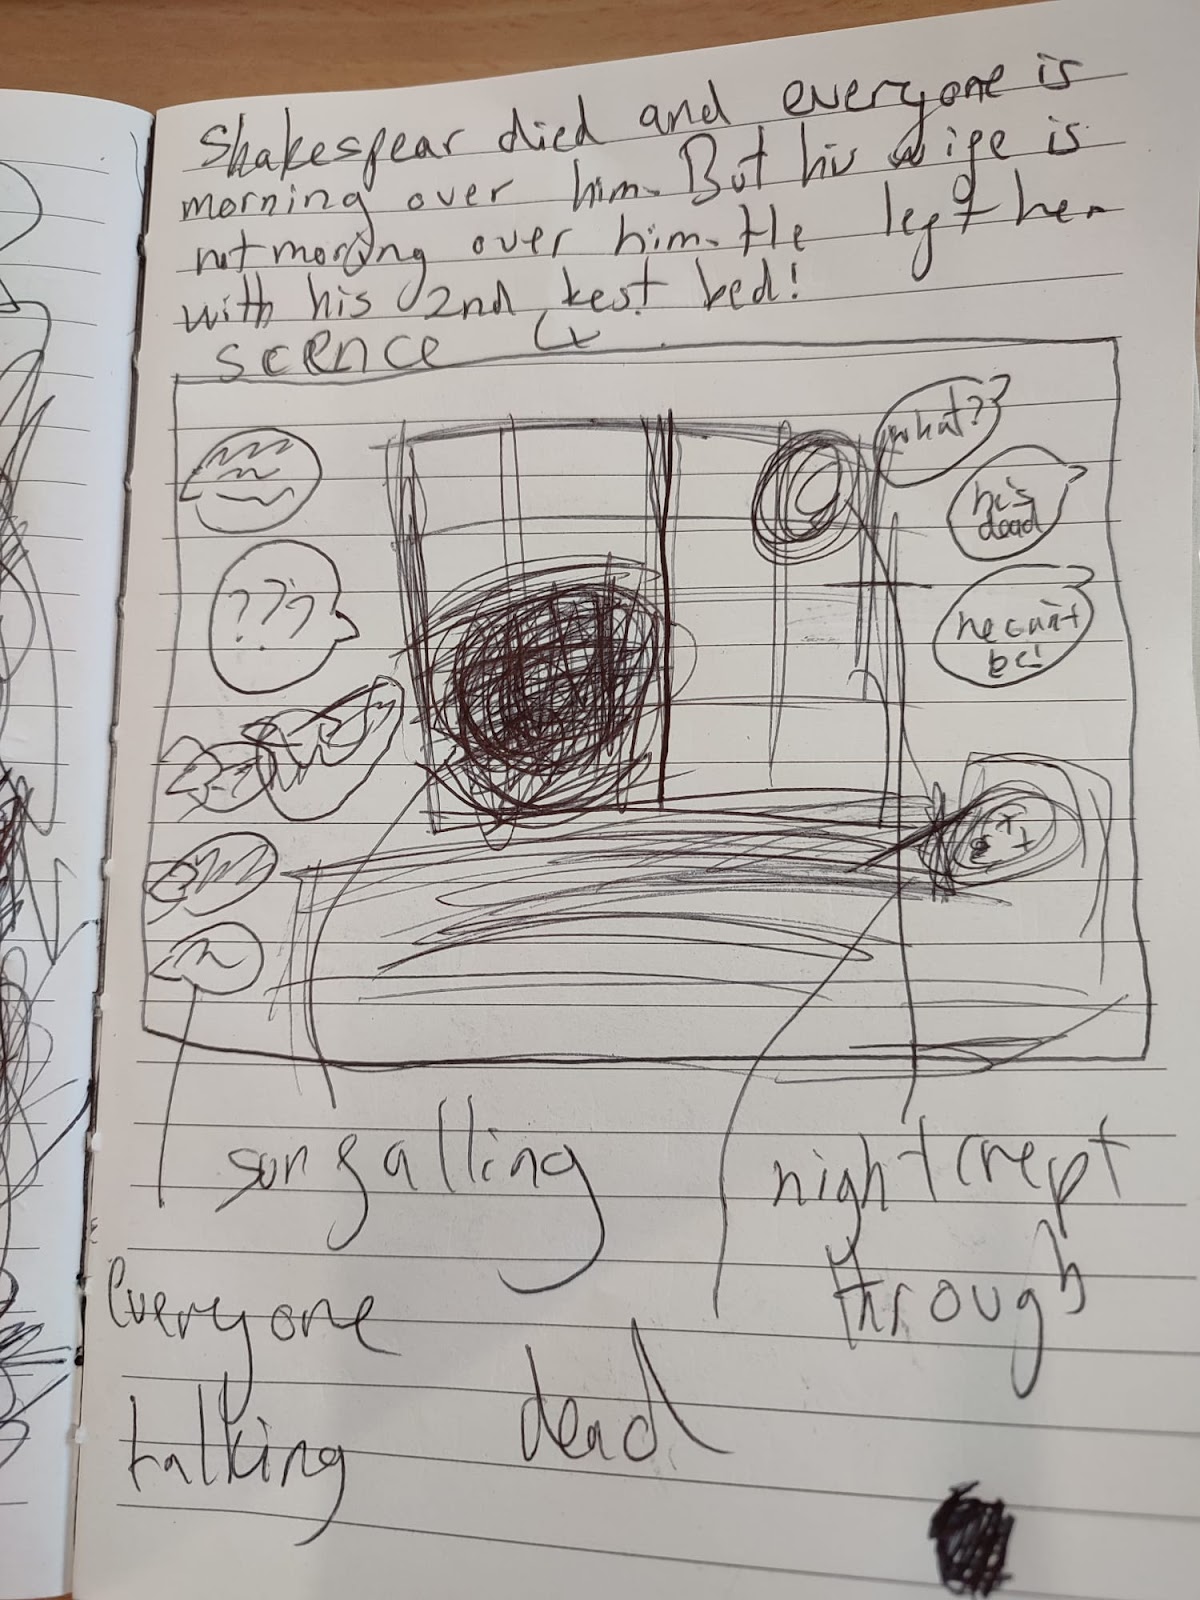 Shakespear died and everyone is
morning over him. But his wife is
not morning over him. He left her
with his 2nd best bed!
scence
what?
his
dead
???
he can't
be!
sun falling
night crept
through
everyone
talking
dead